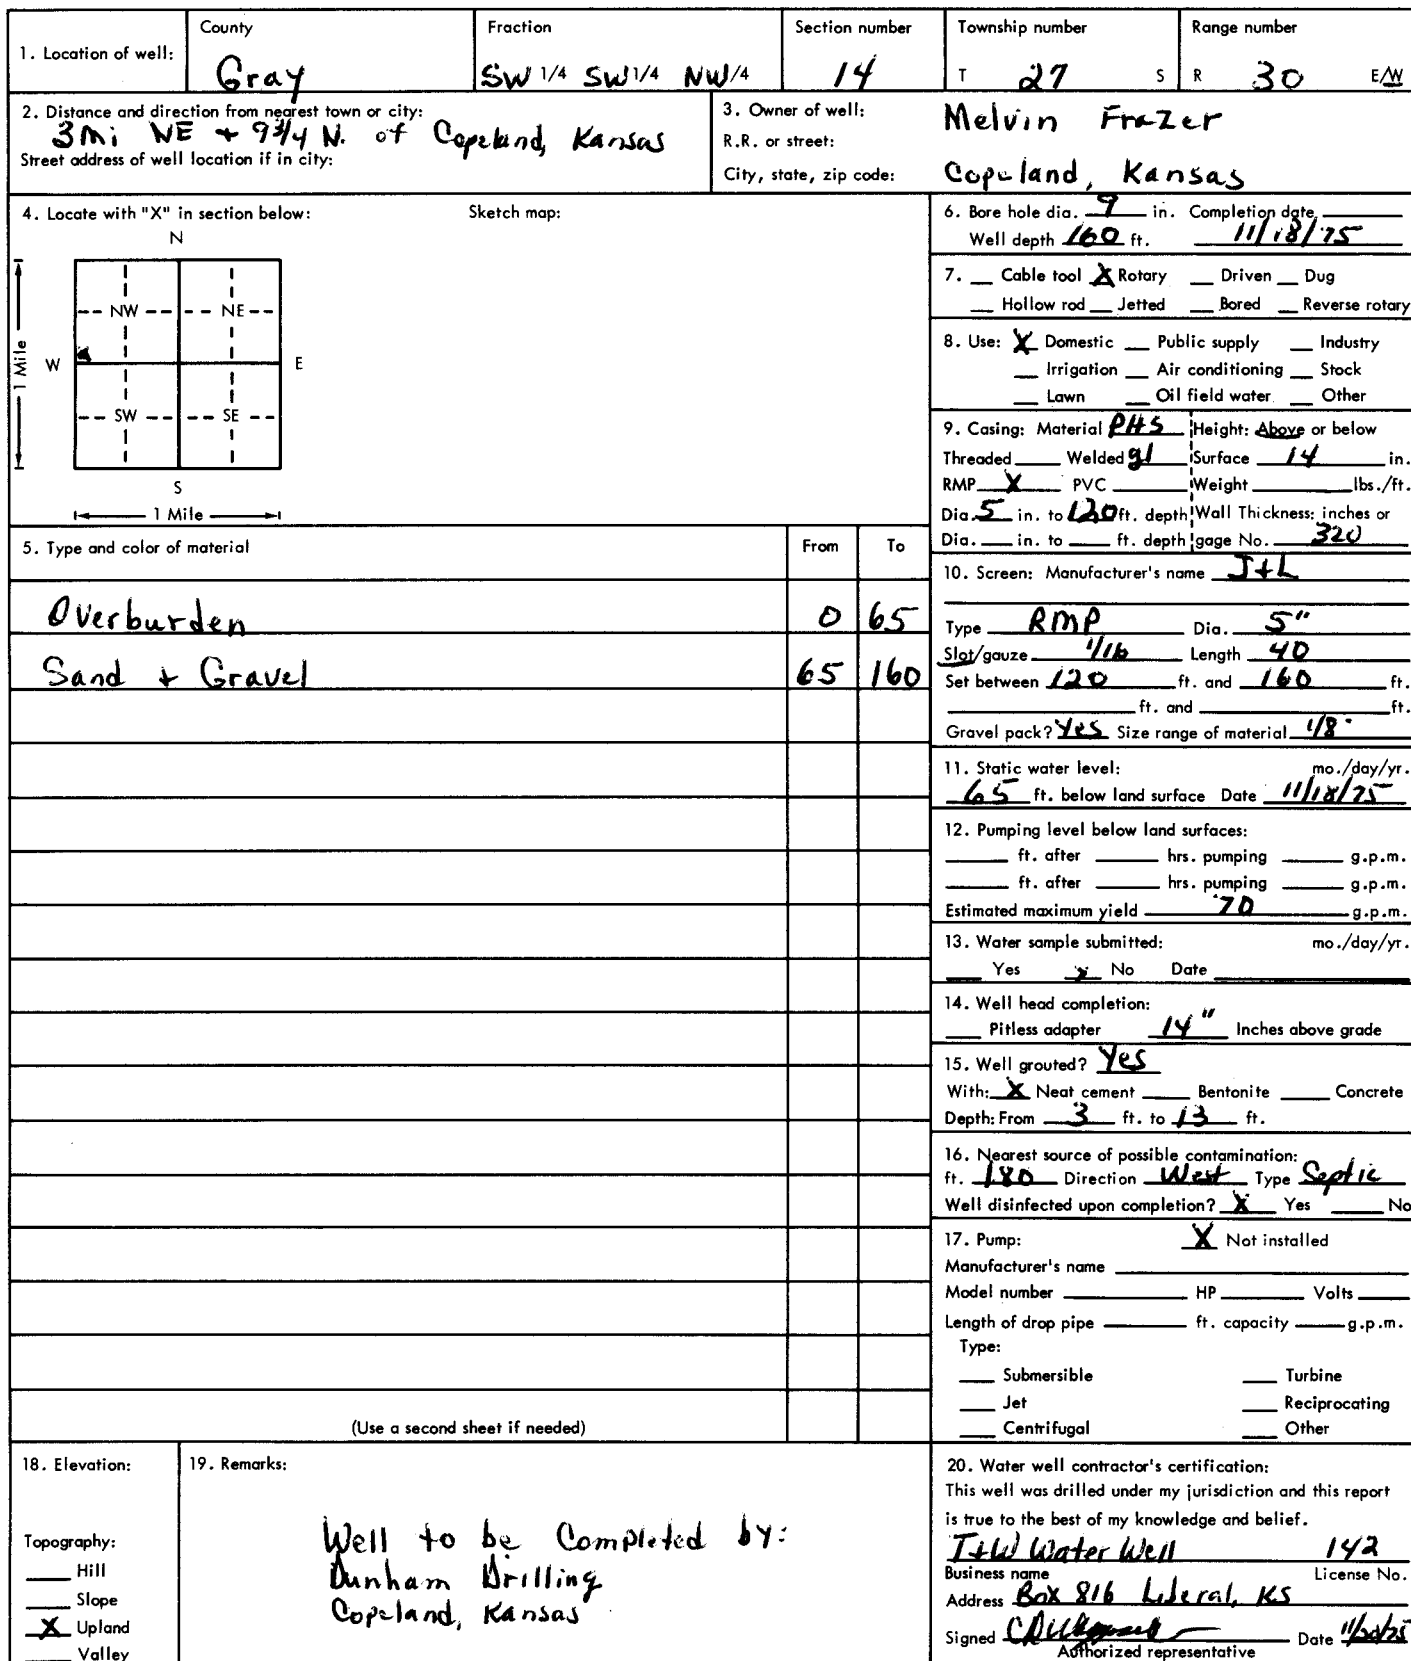 1. Location of well: County Gray Fraction SW 1/4 SW 1/4 NW 1/4 Section number 14 Township number T 27 S Range number R 30 E/W
2. Distance and direction from nearest town or city:
3 Mi NE + 9 3/4 N. of Copeland, Kansas
Street address of well location if in city:
3. Owner of well: Melvin Frazer
R.R. or street:
City, state, zip code: Copeland, Kansas
4. Locate with "X" in section below: Sketch map:
N
NW NE
W E
1 Mile
SW SE
S
1 Mile
5. Type and color of material From To
Overburden 0 65
Sand + Gravel 65 160
(Use a second sheet if needed)
6. Bore hole dia. 9 in. Completion date
Well depth 160 ft. 11/18/75
7. Cable tool X Rotary Driven Dug
Hollow rod Jetted Bored Reverse rotary
8. Use: X Domestic Public supply Industry
Irrigation Air conditioning Stock
Lawn Oil field water Other
9. Casing: Material PHS Height: Above or below
Threaded Welded gl Surface 14 in.
RMP X PVC Weight lbs./ft.
Dia. 5 in. to 120 ft. depth Wall Thickness: inches or
Dia. in. to ft. depth gage No. 320
10. Screen: Manufacturer's name J+L
Type RMP Dia. 5"
Slot/gauze 1/16 Length 40
Set between 120 ft. and 160 ft.
ft. and ft.
Gravel pack? Yes Size range of material 1/8"
11. Static water level: mo./day/yr.
65 ft. below land surface Date 11/18/75
12. Pumping level below land surfaces:
ft. after hrs. pumping g.p.m.
ft. after hrs. pumping g.p.m.
Estimated maximum yield 70 g.p.m.
13. Water sample submitted: mo./day/yr.
Yes x No Date
14. Well head completion:
Pitless adapter 14" Inches above grade
15. Well grouted? Yes
With: X Neat cement Bentonite Concrete
Depth: From 3 ft. to 13 ft.
16. Nearest source of possible contamination:
ft. 180 Direction West Type Septic
Well disinfected upon completion? X Yes No
17. Pump: X Not installed
Manufacturer's name
Model number HP Volts
Length of drop pipe ft. capacity g.p.m.
Type:
Submersible Turbine
Jet Reciprocating
Centrifugal Other
18. Elevation:
Topography:
Hill
Slope
X Upland
Valley
19. Remarks:
Well to be Completed by:
Dunham Drilling
Copeland, Kansas
20. Water well contractor's certification:
This well was drilled under my jurisdiction and this report
is true to the best of my knowledge and belief.
T+W Water Well 142
Business name License No.
Address Box 816 Liberal, KS
Signed Date 11/20/75
Authorized representative